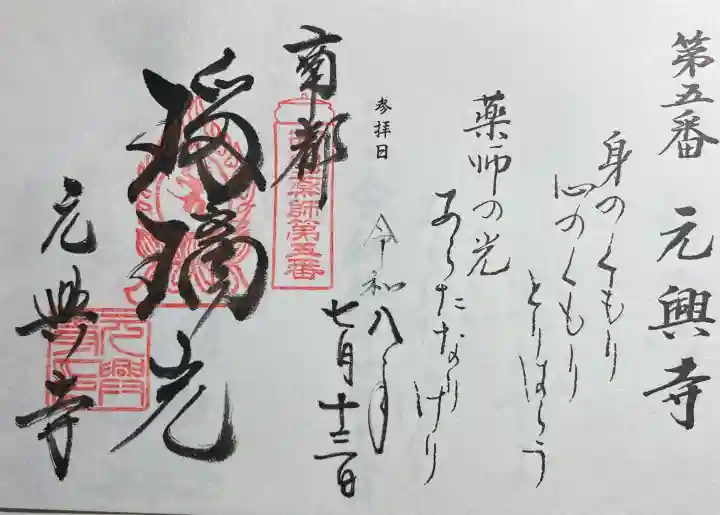 第五番 元興寺
身のくもり
心のくもり
とりはらう
薬師の光
あらたなりけり
参拝日
令和八年
七月十三日
南都
薬師第五番
瑠璃光
元興寺